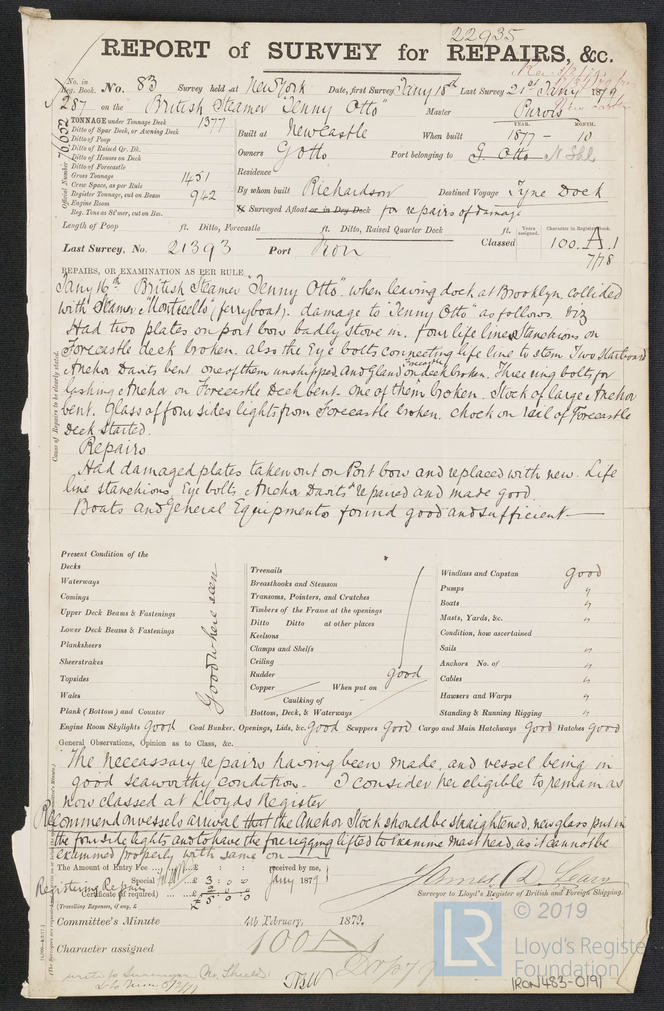 22935
REPORT of SURVEY for REPAIRS, &c.
No. in Reg. Book. No. 83 Survey held at New York Date, first Survey Jany 18th Last Survey 21st Jany 1879
287 on the British Steamer "Jenny Otto" Master Purvis
TONNAGE under Tonnage Deck 1377
Ditto of Spar Deck, or Awning Deck
Ditto of Poop
Ditto of Raised Qr. Dk.
Ditto of Houses on Deck
Ditto of Forecastle
Gross Tonnage 1451
Crew Space, as per Rule
Register Tonnage, cut on Beam 942
Engine Room
Reg. Tons as St'mer, cut on Bm.
Official Number
YEAR. MONTH.
Built at Newcastle When built 1877 - 10
Owners G Otto Port belonging to G. Otto N Shl
Residence
By whom built Richardson Destined Voyage Tyne Dock
Surveyed Afloat or in Dry Dock for repairs of damage
Length of Poop ft. Ditto, Forecastle ft. Ditto, Raised Quarter Deck ft.
Years assigned. Character in Register book.
Last Survey, No. 21393 Port Iron Classed 100.A.1
7/78
REPAIRS, OR EXAMINATION AS PER RULE
Jany 16th British Steamer "Jenny Otto" when leaving dock at Brooklyn, collided
with Steamer "Monticello" (ferryboat). damage to "Jenny Otto" as follows. viz
Had two plates on port bow badly stove in. four life lines Stanchions on
Forecastle deck broken. also the Eye bolts connecting life line to stem Two starboard
Anchor Davits bent one of them unshipped, and Gland on deck broken. Three ring bolts for
lashing Anchor on Forecastle Deck bent. one of them broken. Stock of large Anchor
bent. Glass of four sides lights from Forecastle broken. chock on rail of Forecastle
deck started.
Repairs
Had damaged plates taken out on Port bow and replaced with new. Life
line stanchions, Eye bolts, Anchor Davits repaired and made good.
Boats and General Equipments found good and sufficient
Cause of Repairs to be clearly stated.
Present Condition of the
Decks
Waterways
Comings
Upper Deck Beams & Fastenings
Lower Deck Beams & Fastenings
Planksheers
Sheerstrakes
Topsides
Wales
Plank (Bottom) and Counter
Good where seen
Treenails
Breasthooks and Stemson
Transoms, Pointers, and Crutches
Timbers of the Frame at the openings
Ditto Ditto at other places
Keelsons
Clamps and Shelfs
Ceiling
Rudder good
Copper When put on
Caulking of
Bottom, Deck, & Waterways
Windlass and Capstan good
Pumps "
Boats "
Masts, Yards, &c. "
Condition, how ascertained
Sails "
Anchors No. of "
Cables "
Hawsers and Warps "
Standing & Running Rigging "
Engine Room Skylights Good Coal Bunker, Openings, Lids, &c. Good Scuppers Good Cargo and Main Hatchways Good Hatches Good
General Observations, Opinion as to Class, &c.
The neccassary repairs having been made, and vessel being in
good seaworthy condition. I consider her eligible to remain as
now classed at Lloyds Register
Recommend on vessels arrival that the Anchor Stock should be straightened, new glass put in
the four side lights and to have the fore rigging lifted to examine mast head, as it cannot be
examined properly with same on
The Amount of Entry Fee ... £ : : received by me,
Special ... £ 3 : 0 : Jany 1879
Registering Repairs
Certificate (if required)
(Travelling Expenses, if any, £
Surveyor to Lloyd's Register of British and Foreign Shipping.
Committee's Minute 4th February, 1879.
Character assigned 100 A 1
© 2019
LR Lloyd's Register
Foundation
IRON483-0191